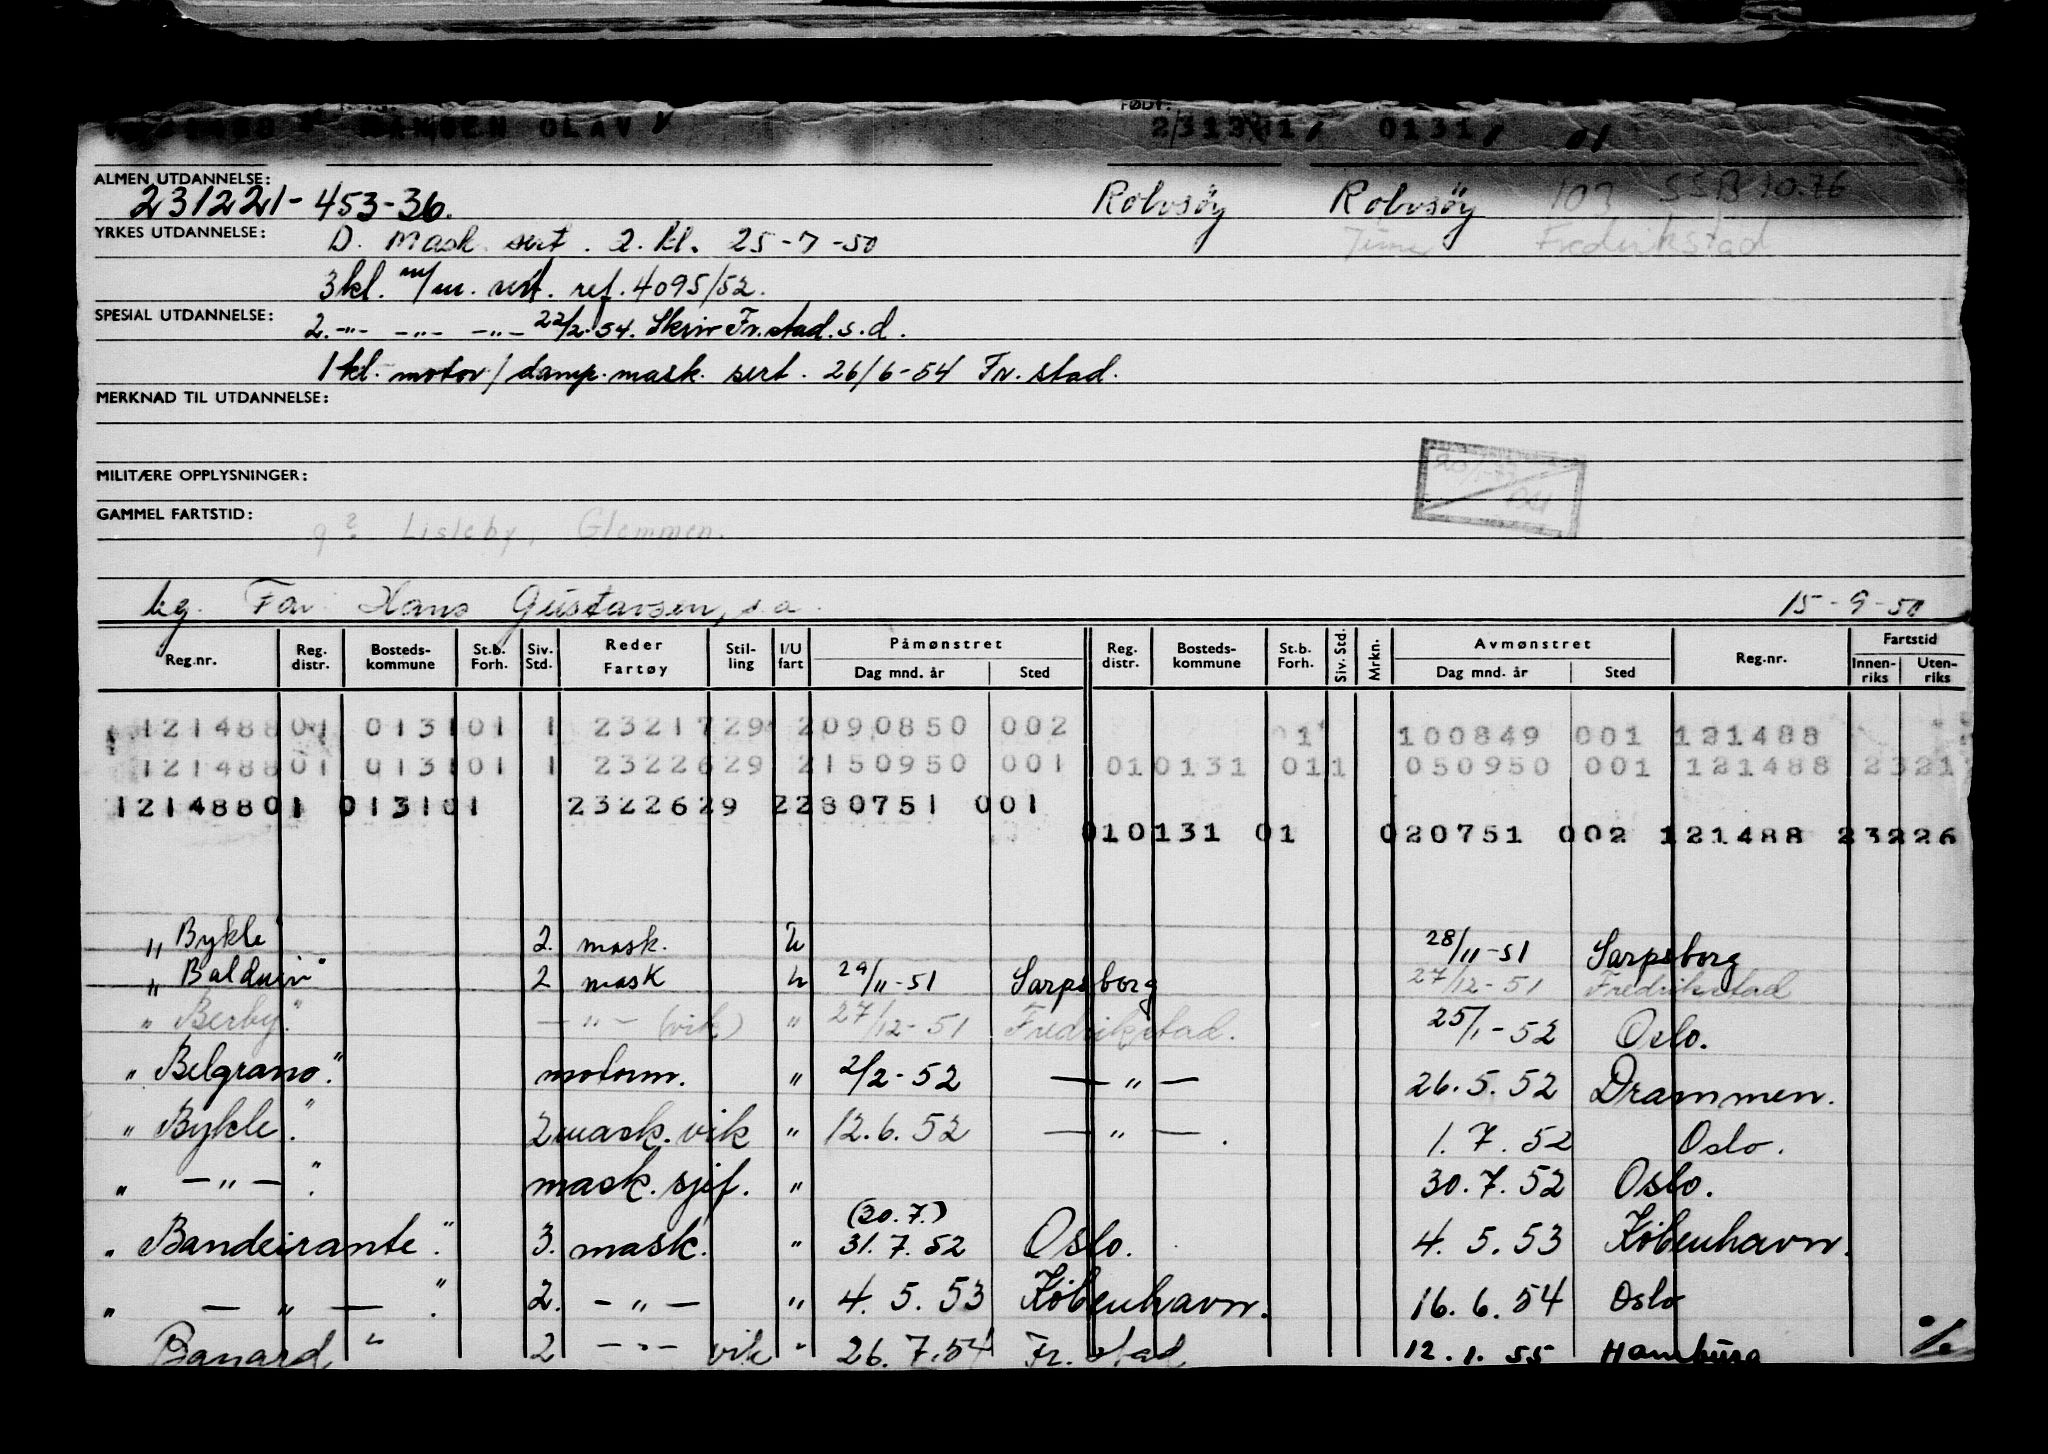 HANSEN OLAV
FØDT:
0131
01
ALMEN UTDANNELSE:
231221-453-36.
Rolvsøy Rolvsøy 103 SSB 10.76
YRKES UTDANNELSE:
D. Mask. sert. 2. kl. 25-7-50
Fredrikstad
3 kl. m/m. sert. ref. 4095/52.
SPESIAL UTDANNELSE:
2. -"- -"- -"- 22/2-54. Skriv Fr.stad. s.d.
1 kl. motor/damp. mask. sert. 26/6-54 Fr. stad.
MERKNAD TIL UTDANNELSE:
MILITÆRE OPPLYSNINGER:
GAMMEL FARTSTID:
g? Lisleby, Glemmen.
kg. Far Hans Gustavsen, s.a. 15-9-50
Reg.nr. Reg. distr. Bosteds- kommune St.b. Forh. Siv. Std. Reder Fartøy Stil- ling I/U fart Påmønstret Dag mnd. år Sted Reg. distr. Bosteds- kommune St.b. Forh. Siv. Std. Mrkn. Avmønstret Dag mnd. år Sted Reg.nr. Fartstid Innen- riks Uten- riks
121488 01 0131 01 1 23217 29 2 090850 002 01 100849 001 121488
121488 01 0131 01 1 23226 29 2 150950 001 01 0131 01 1 050950 001 121488 2321
121488 01 0131 01 23226 29 2 280751 001
01 0131 01 020751 002 121488 23226
" Bykle" 2. mask. u 28/11-51 Sarpsborg
" Balduin" 2 mask u 29/11-51 Sarpsborg 27/12-51 Fredrikstad
" Berby." -"- (vik) " 27/12-51 Fredrikstad. 25/1-52 Oslo.
" Belgrano." motorm. " 2/2-52 -"- 26.5.52 Drammen.
" Bykle." 2 mask. vik " 12.6.52 -"-. 1.7.52 Oslo.
" -"-." mask. sjef. " 30.7.52 Oslo.
(30.7.)
" Bandeirante." 3. mask. " 31.7.52 Oslo. 4.5.53 København.
" -"-." 2. -"- " 4.5.53 København. 16.6.54 Oslo
Banard " 2 -"- vik " 26.7.54 Fr. stad 12.1.55 Hamburg